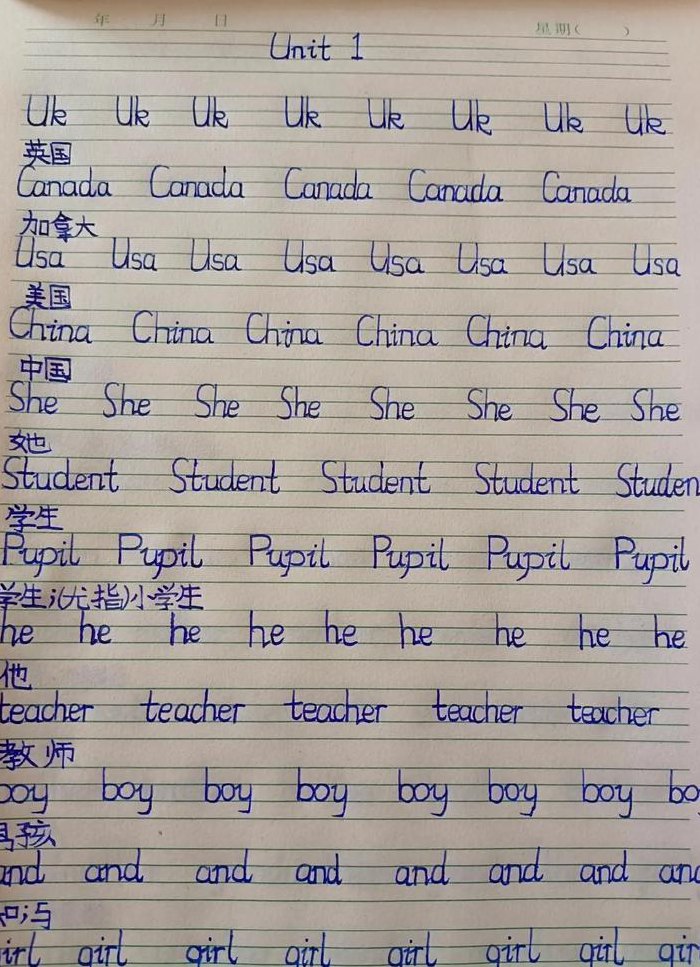 年 月 日 星期( )
Unit 1
Uk Uk Uk Uk Uk Uk Uk Uk
英国
Canada Canada Canada Canada Canada
加拿大
Usa Usa Usa Usa Usa Usa Usa Usa
美国
China China China China China China
中国
She She She She She She She She
她
Student Student Student Student Studen
学生
Pupil Pupil Pupil Pupil Pupil Pupil
学生;(尤指)小学生
he he he he he he he he he
他
teacher teacher teacher teacher teacher
教师
boy boy boy boy boy boy boy bo
男孩
and and and and and and and and
和;与
girl girl girl girl girl girl girl gir